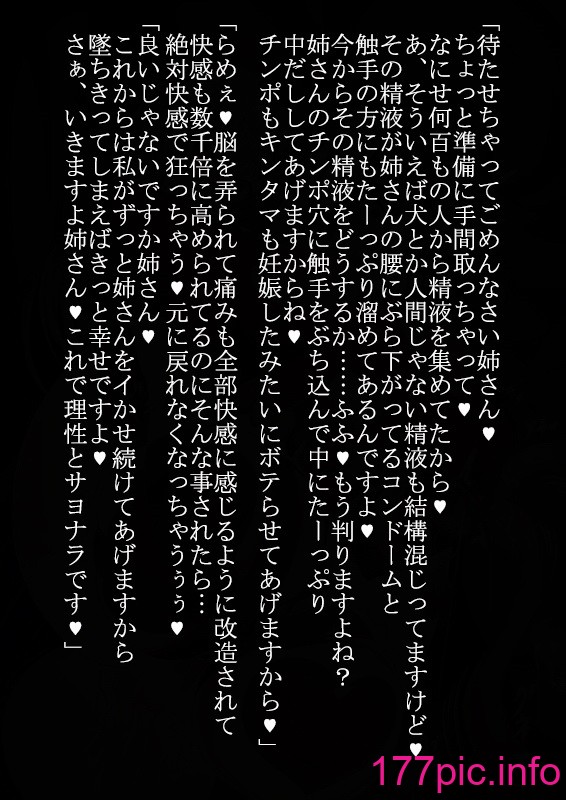 「待たせちゃってごめんなさい姉さん♥
ちょっと準備に手間取っちゃって♥
なにせ何百もの人から精液を集めてたから♥
あ、そういえば犬とか人間じゃない精液も結構混じってますけど♥
その精液が姉さんの腰にぶら下がってるコンドームと
触手の方にもたーっぷり溜めてあるんですよ♥
今からその精液をどうするか……ふふ♥もう判りますよね？
姉さんのチンポ穴に触手をぶち込んで中にたーっぷり
中だししてあげますからね♥
チンポもキンタマも妊娠したみたいにボテらせてあげますから♥」
「らめぇ♥脳を弄られて痛みも全部快感に感じるように改造されて
快感も数千倍に高められてるのにそんな事されたら…
絶対快感で狂っちゃう♥元に戻れなくなっちゃうぅぅ♥
「良いじゃないですか姉さん♥
これからは私がずっと姉さんをイかせ続けてあげますから
墜ちきってしまえばきっと幸せですよ♥
さぁ、いきますよ姉さん♥これで理性とサヨナラです♥」
177pic.info